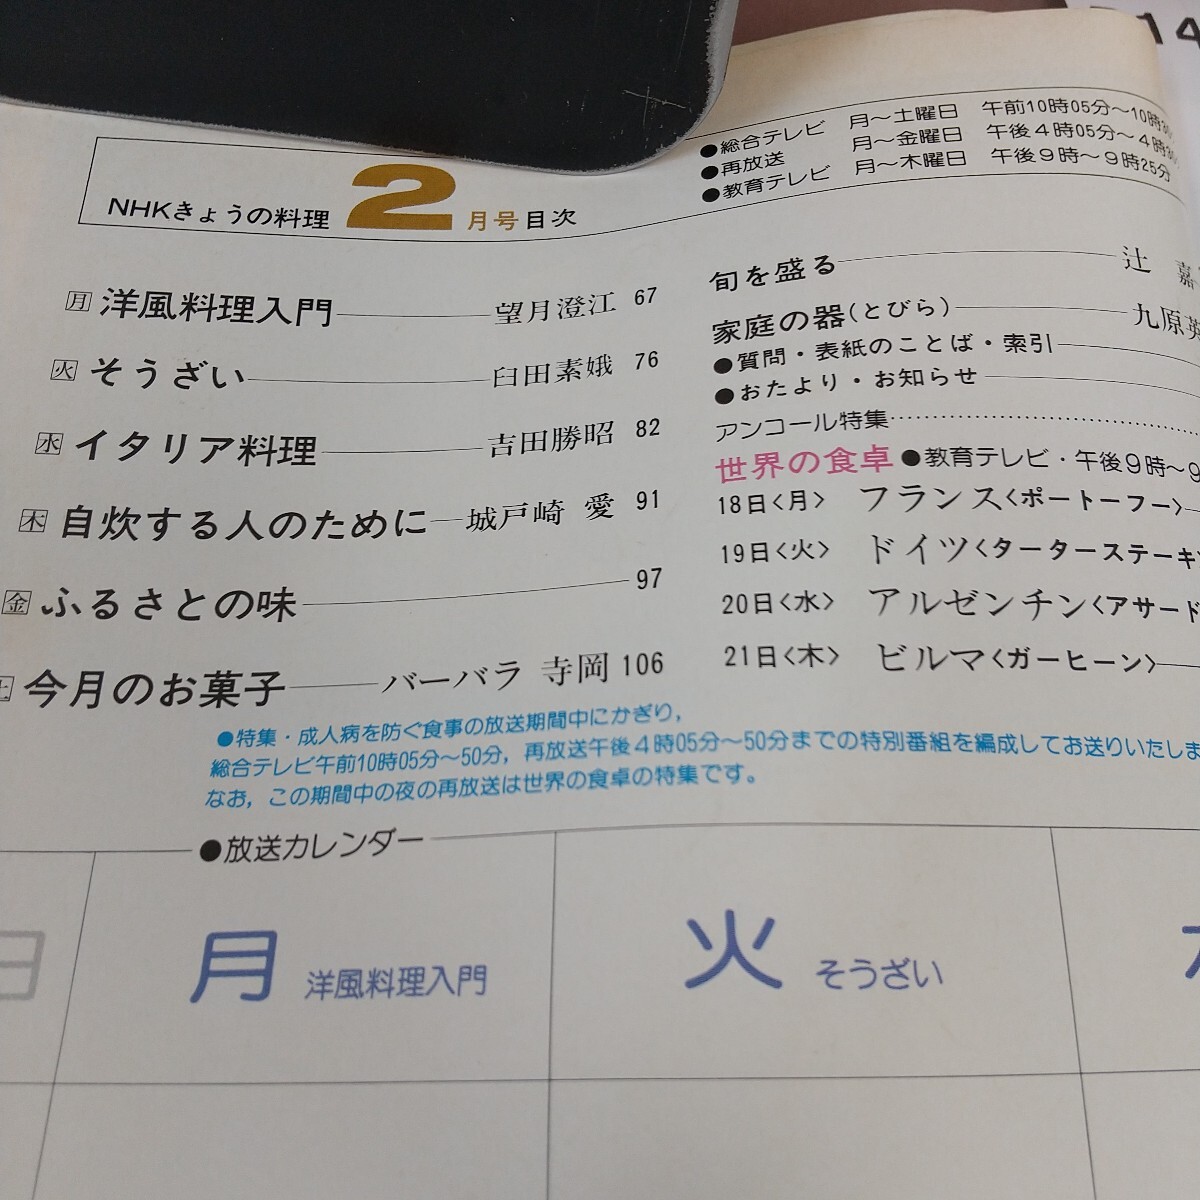 14
●総合テレビ 月～土曜日 午前10時05分～10時30
●再放送 月～金曜日 午後4時05分～4時30
●教育テレビ 月～木曜日 午後9時～9時25分
NHKきょうの料理 2月号目次
月 洋風料理入門 望月澄江 67
火 そうざい 臼田素娥 76
水 イタリア料理 吉田勝昭 82
木 自炊する人のために 城戸崎 愛 91
金 ふるさとの味 97
土 今月のお菓子 バーバラ 寺岡 106
旬を盛る 辻 嘉
家庭の器(とびら) 九原英
●質問・表紙のことば・索引
●おたより・お知らせ
アンコール特集
世界の食卓 ●教育テレビ・午後9時～9
18日〈月〉 フランス〈ポートーフー〉
19日〈火〉 ドイツ〈ターターステーキ
20日〈水〉 アルゼンチン〈アサード
21日〈木〉 ビルマ〈ガーヒーン〉
●特集・成人病を防ぐ食事の放送期間中にかぎり，
総合テレビ午前10時05分～50分，再放送午後4時05分～50分までの特別番組を編成してお送りいたしま
なお，この期間中の夜の再放送は世界の食卓の特集です。
●放送カレンダー
日 月 洋風料理入門 火 そうざい